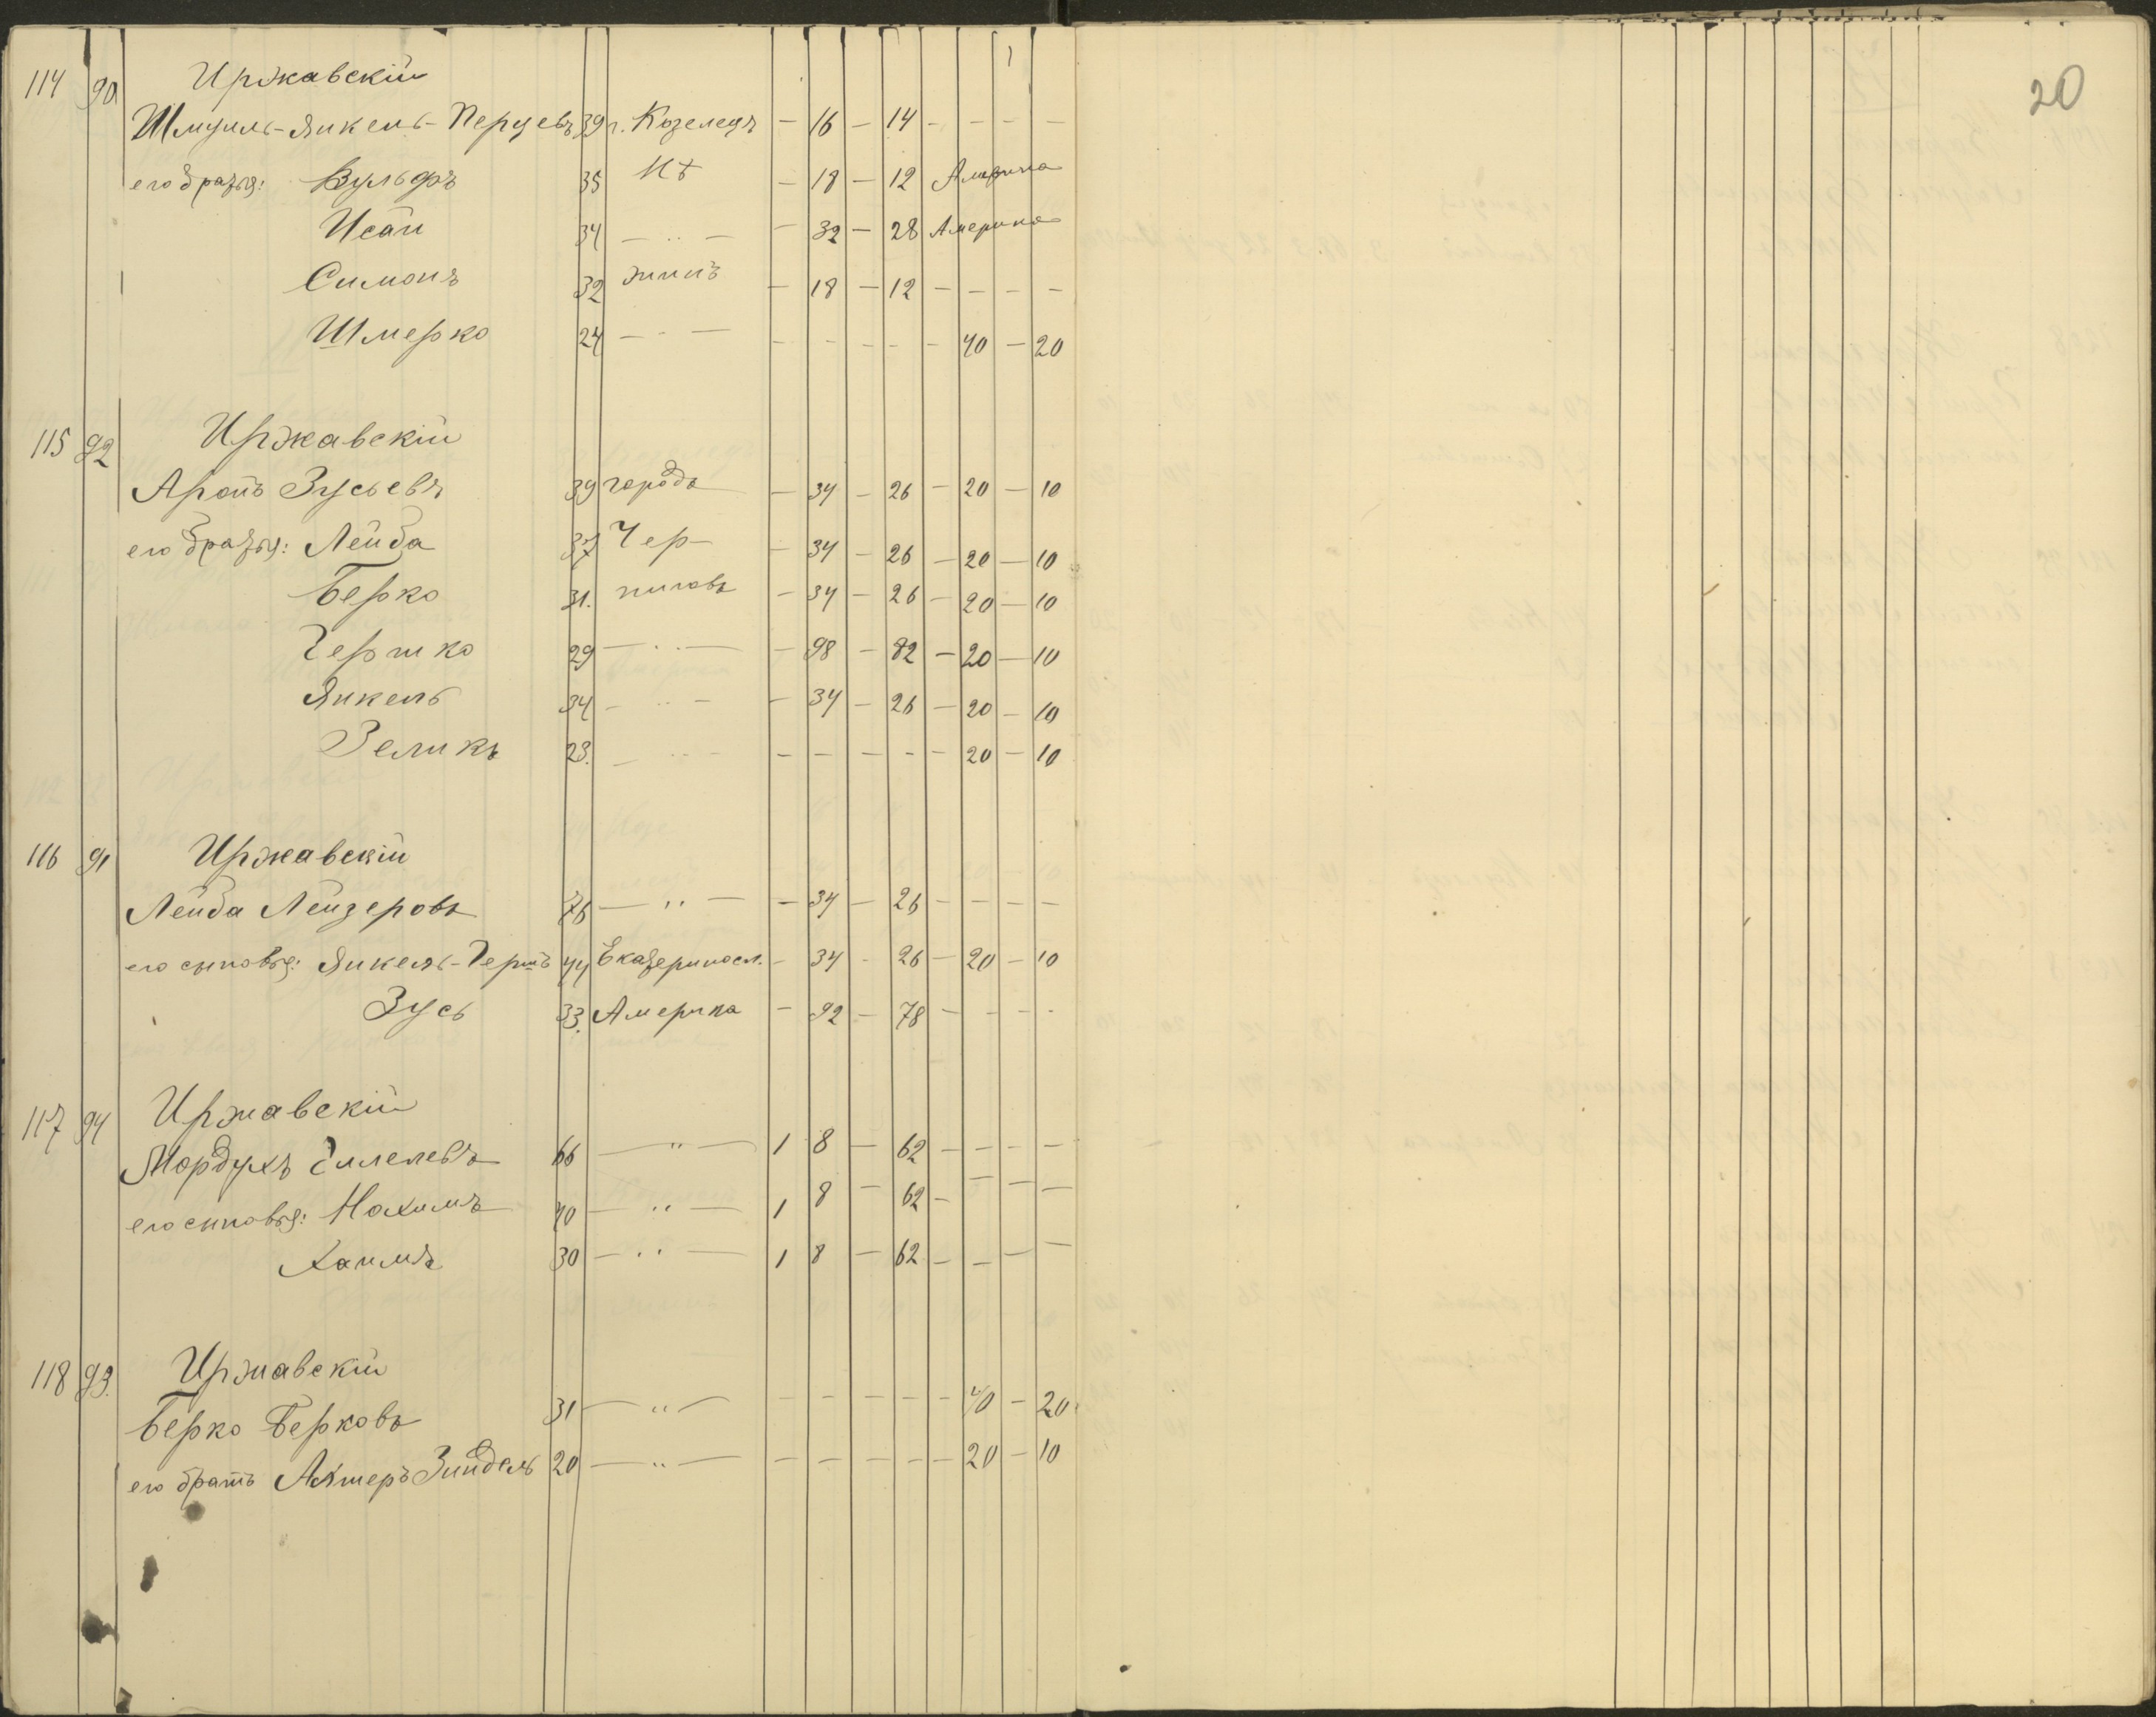 20
114 90 Иржавскій
Шмуиль-Янкель-Перцевъ 39 г. Козелецъ — 16 — 14 — — — —
его братья: Вульфъ 35 — 18 — 12 Америка
Исай 34 — " — — 32 — 28 Америка
Симонъ 32 — 18 — 12 — — — —
Шмерко 24 — " — — — — — — 40 — 20
115 92 Иржавскій
Аронъ Зусьевъ 39 городъ — 34 — 26 — 20 — 10
его братья: Лейба 37 Чер- — 34 — 26 — 20 — 10
Берко 31. ниговъ — 34 — 26 — 20 — 10
Гершко 29 — " — — 98 — 82 — 20 — 10
Янкель 34 — " — — 34 — 26 — 20 — 10
Зеликъ 23. — " — — — — — — 20 — 10
116 91 Иржавскій
Лейба Лейзеровъ 76 — " — — 34 — 26 — — — —
его сыновья: Янкель-Гершъ 44 Екатериносл. — 34 — 26 — 20 — 10
Зусь 33. Америка — 92 — 78 — — — —
117 94 Иржавскій
Мордухъ 66 — " — 1 8 — 62 — — — —
его сыновья: Нохимъ 40 — " — 1 8 — 62 — — — —
Хаимъ 30 — " — 1 8 — 62 — — — —
118 93. Иржавскій
Берко Берковъ 31 — " — — — — — — 40 — 20
его братъ Зиндель 20 — " — — — — — — 20 — 10